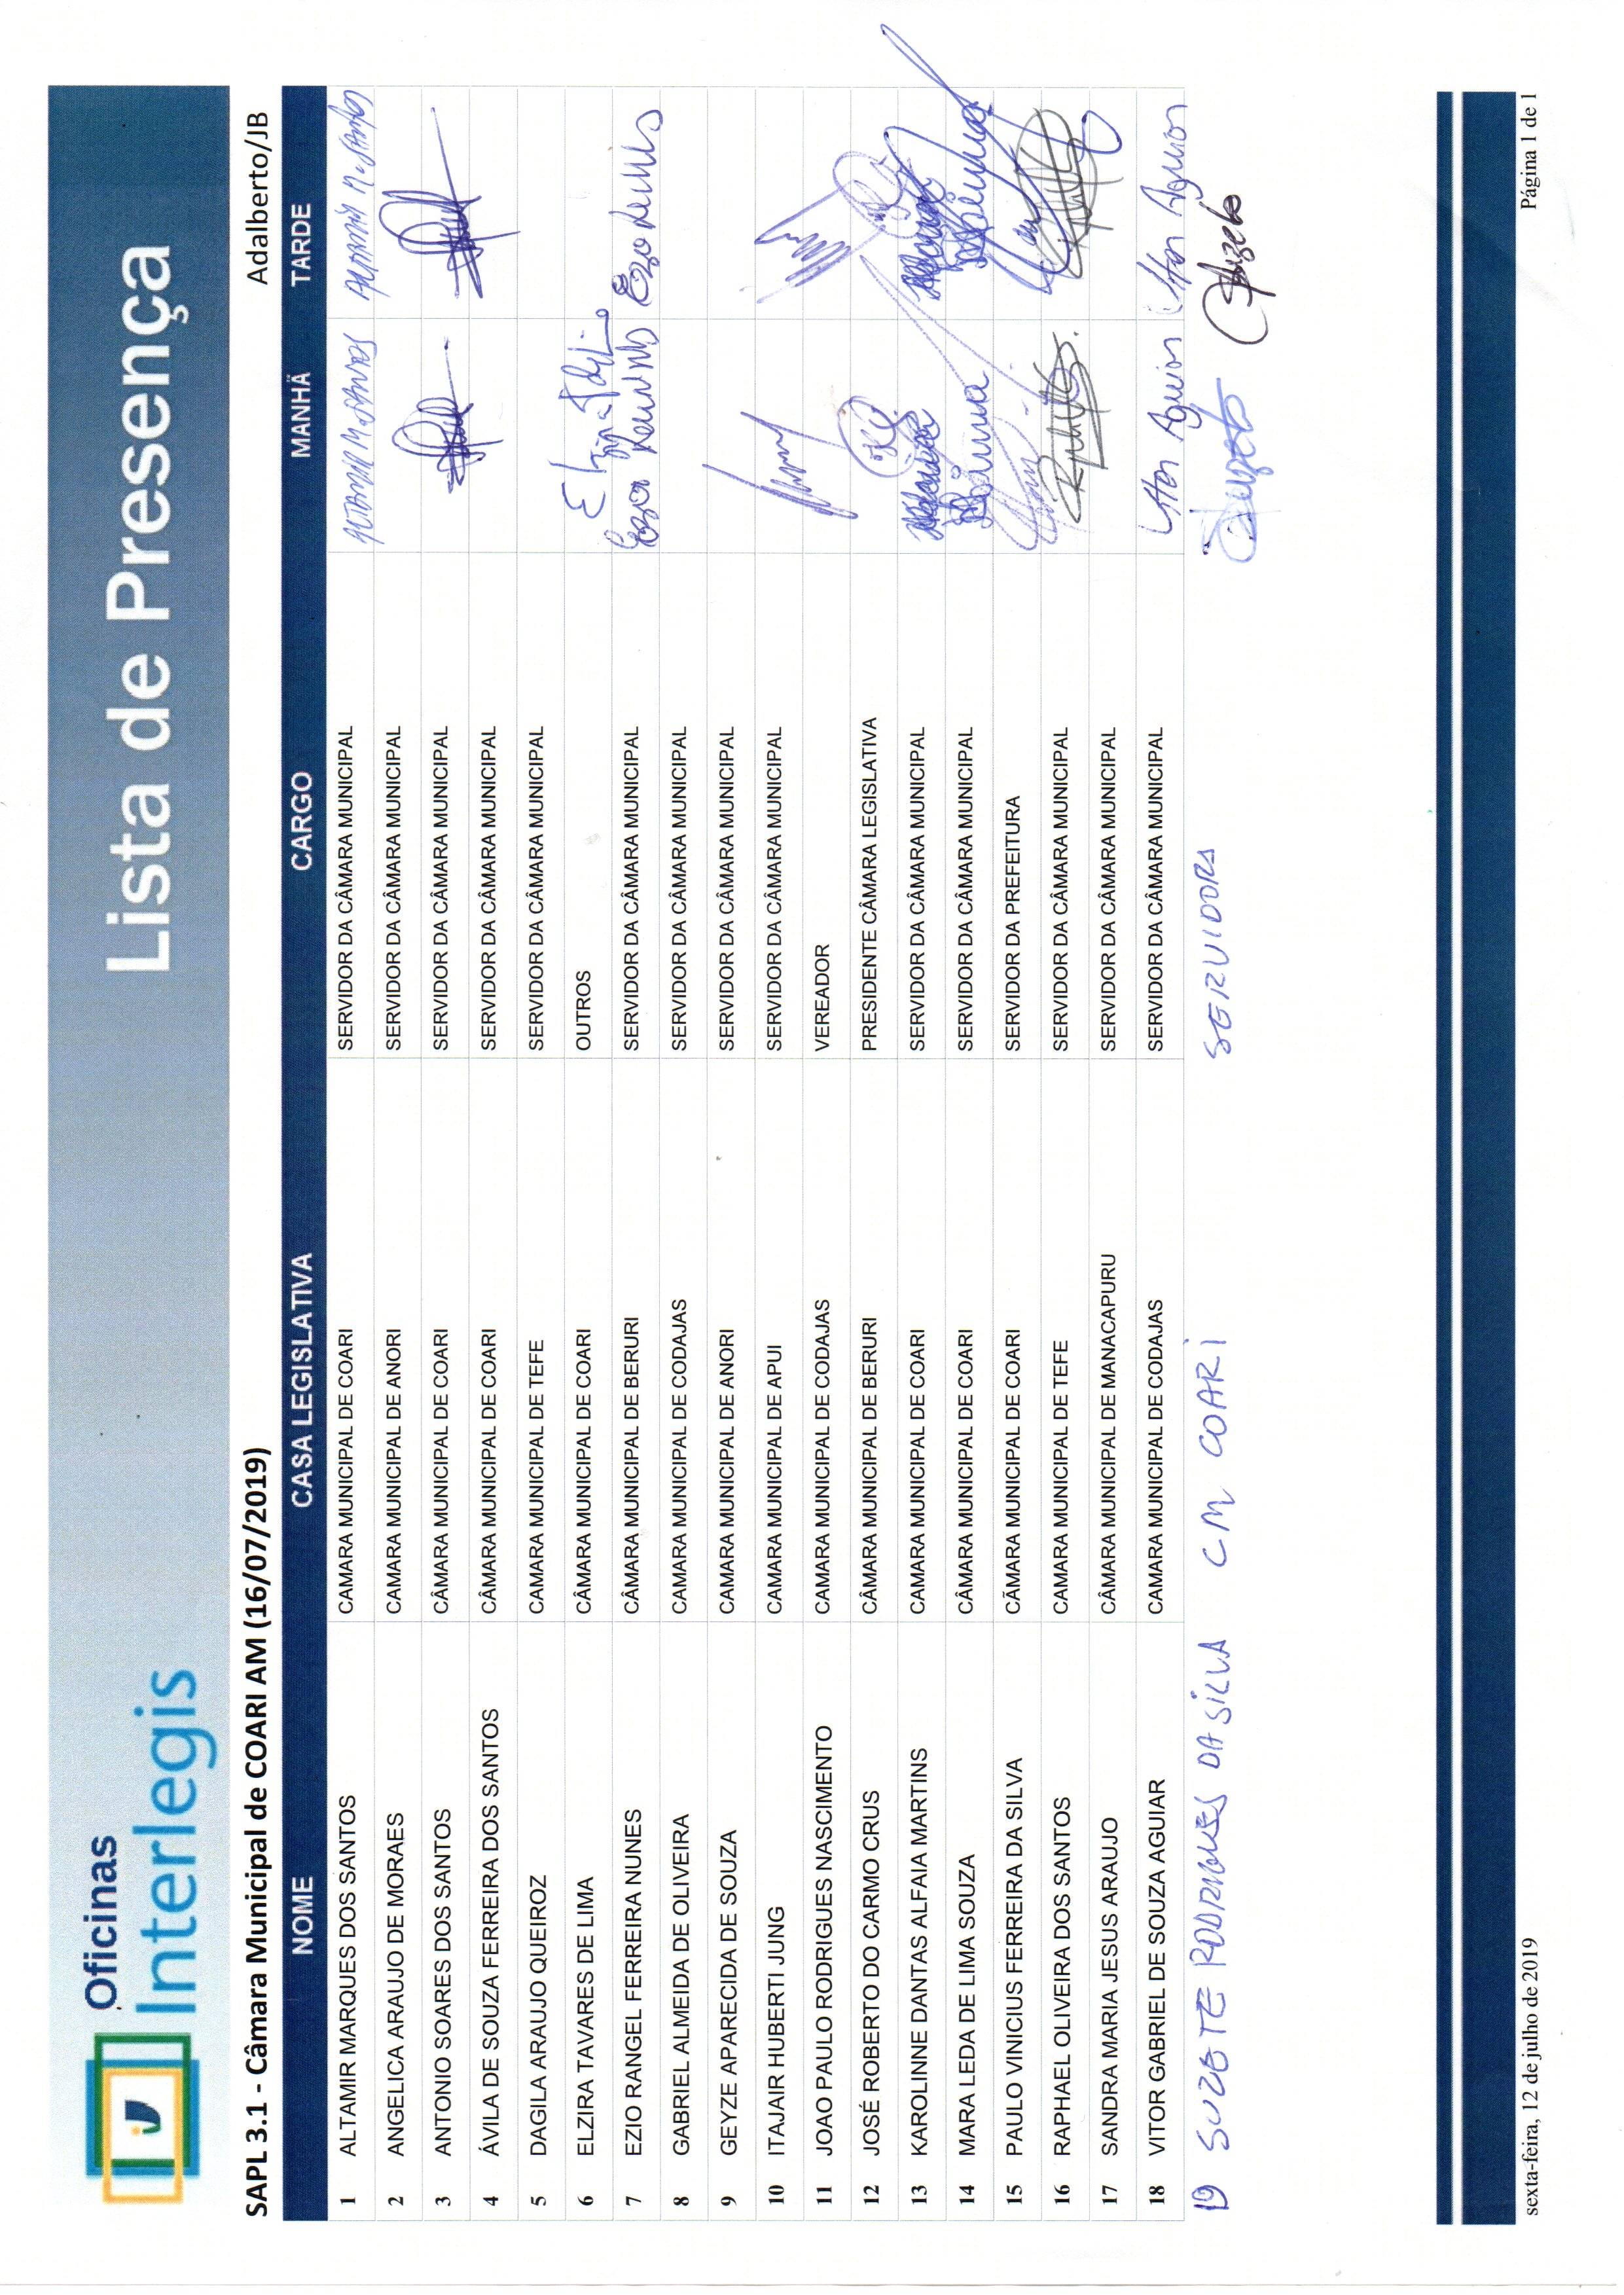 Oficinas
Interlegis
Lista de Presença
SAPL 3.1 - Câmara Municipal de COARI AM (16/07/2019) Adalberto/JB
NOME CASA LEGISLATIVA CARGO MANHÃ TARDE
1 ALTAMIR MARQUES DOS SANTOS CAMARA MUNICIPAL DE COARI SERVIDOR DA CÂMARA MUNICIPAL
2 ANGELICA ARAUJO DE MORAES CAMARA MUNICIPAL DE ANORI SERVIDOR DA CÂMARA MUNICIPAL
3 ANTONIO SOARES DOS SANTOS CÂMARA MUNICIPAL DE COARI SERVIDOR DA CÂMARA MUNICIPAL
4 ÁVILA DE SOUZA FERREIRA DOS SANTOS CÂMARA MUNICIPAL DE COARI SERVIDOR DA CÂMARA MUNICIPAL
5 DAGILA ARAUJO QUEIROZ CAMARA MUNICIPAL DE TEFE SERVIDOR DA CÂMARA MUNICIPAL
6 ELZIRA TAVARES DE LIMA CÂMARA MUNICIPAL DE COARI OUTROS
7 EZIO RANGEL FERREIRA NUNES CÂMARA MUNICIPAL DE BERURI SERVIDOR DA CÂMARA MUNICIPAL
8 GABRIEL ALMEIDA DE OLIVEIRA CAMARA MUNICIPAL DE CODAJAS SERVIDOR DA CÂMARA MUNICIPAL
9 GEYZE APARECIDA DE SOUZA CAMARA MUNICIPAL DE ANORI SERVIDOR DA CÂMARA MUNICIPAL
10 ITAJAIR HUBERTI JUNG CAMARA MUNICIPAL DE APUI SERVIDOR DA CÂMARA MUNICIPAL
11 JOAO PAULO RODRIGUES NASCIMENTO CAMARA MUNICIPAL DE CODAJAS VEREADOR
12 JOSÉ ROBERTO DO CARMO CRUS CÂMARA MUNICIPAL DE BERURI PRESIDENTE CÂMARA LEGISLATIVA
13 KAROLINNE DANTAS ALFAIA MARTINS CAMARA MUNICIPAL DE COARI SERVIDOR DA CÂMARA MUNICIPAL
14 MARA LEDA DE LIMA SOUZA CAMARA MUNICIPAL DE COARI SERVIDOR DA CÂMARA MUNICIPAL
15 PAULO VINICIUS FERREIRA DA SILVA CÃMARA MUNICIPAL DE COARI SERVIDOR DA PREFEITURA
16 RAPHAEL OLIVEIRA DOS SANTOS CAMARA MUNICIPAL DE TEFE SERVIDOR DA CÂMARA MUNICIPAL
17 SANDRA MARIA JESUS ARAUJO CÂMARA MUNICIPAL DE MANACAPURU SERVIDOR DA CÂMARA MUNICIPAL
18 VITOR GABRIEL DE SOUZA AGUIAR CAMARA MUNICIPAL DE CODAJAS SERVIDOR DA CÂMARA MUNICIPAL
19 SUZETE RODRIGUES DA SILVA CM COARI SERVIDORA
sexta-feira, 12 de julho de 2019 Página 1 de 1